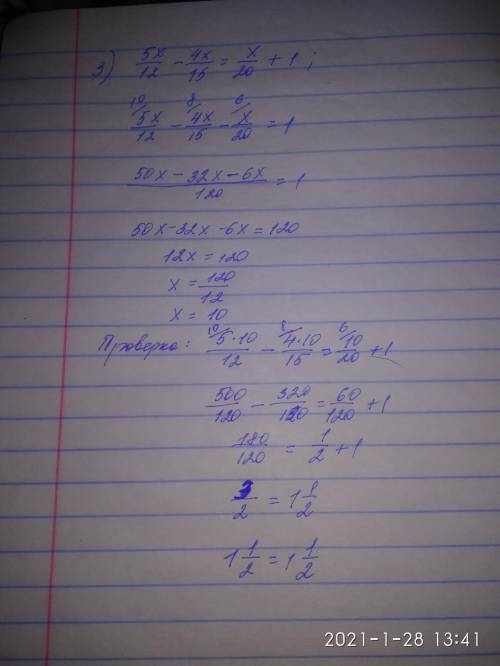 3) 5x/12 - 4x/15 = x/20 + 1;
10/ 5x/12 - 8/ 4x/15 - 6/ x/20 = 1
50x - 32x - 6x / 120 = 1
50x - 32x - 6x = 120
12x = 120
x = 120/12
x = 10
Проверка: 10/ 5·10/12 - 8/ 4·10/15 = 6/ 10/20 + 1
500/120 - 320/120 = 60/120 + 1
180/120 = 1/2 + 1
3/2 = 1 1/2
1 1/2 = 1 1/2
2021-1-28 13:41